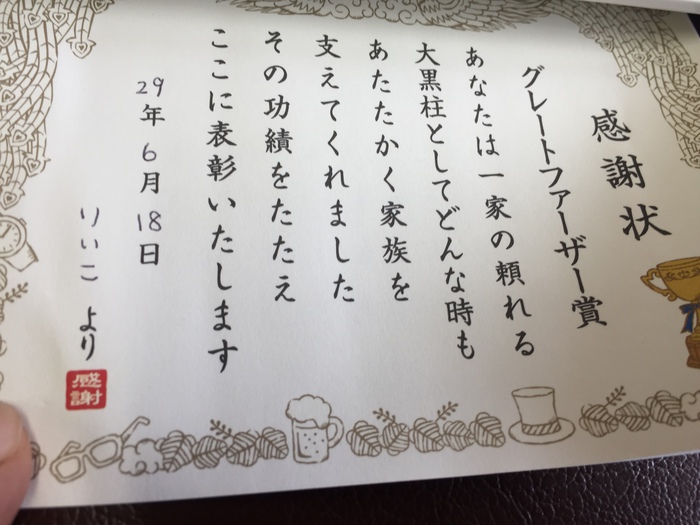 感謝状
グレートファーザー賞
あなたは一家の頼れる
大黒柱としてどんな時も
あたたかく家族を
支えてくれました
その功績をたたえ
ここに表彰いたします
29年6月18日
りいこ より
感謝